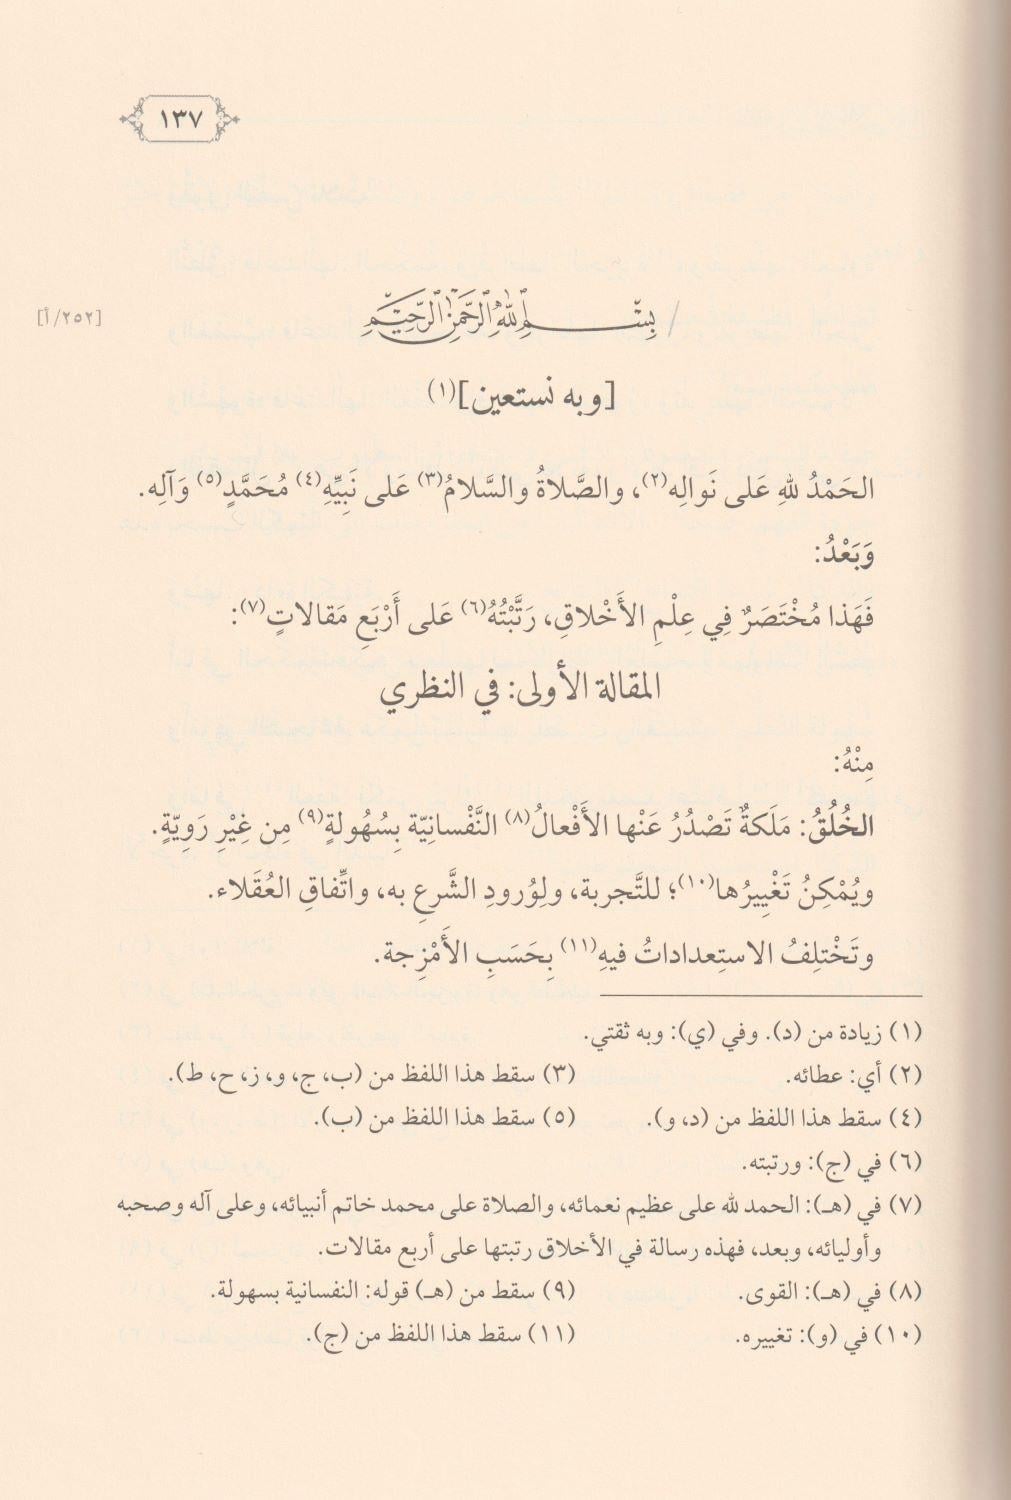 ١٣٧
بِسْمِ اللهِ الرَّحْمٰنِ الرَّحِيْمِ
[٢٥٢/أ]
[وبه نستعين](١)
الحَمْدُ للهِ عَلى نَوالِه(٢)، والصَّلاةُ والسَّلامُ(٣) عَلى نَبِيِّهِ(٤) مُحَمَّدٍ(٥) وَآلِه.
وَبَعْدُ:
فَهَذا مُخْتَصَرٌ فِي عِلْمِ الأَخْلاقِ، رَتَّبْتُهُ(٦) عَلى أَرْبَعِ مَقالاتٍ(٧):
المقالة الأولى: في النظري
مِنْهُ:
الخُلُقُ: مَلَكةٌ تَصْدُرُ عَنْها الأَفْعالُ(٨) النَّفْسانِيّة بِسُهُولةٍ(٩) مِن غِيْرِ رَوِيّةٍ.
ويُمْكِنُ تَغْيِيرُها(١٠)؛ للتَّجربة، ولِوُرودِ الشَّرعِ به، واتِّفاقِ العُقَلاء.
وتَخْتلِفُ الاستِعداداتُ فيهِ(١١) بِحَسَبِ الأَمْزِجة.
(١) زيادة من (د). وفي (ي): وبه ثقتي.
(٢) أي: عطائه. (٣) سقط هذا اللفظ من (ب، ج، و، ز، ح، ط).
(٤) سقط هذا اللفظ من (د، و). (٥) سقط هذا اللفظ من (ب).
(٦) في (ج): ورتبته.
(٧) في (هـ): الحمد لله على عظيم نعمائه، والصلاة على محمد خاتم أنبيائه، وعلى آله وصحبه
وأوليائه، وبعد، فهذه رسالة في الأخلاق رتبتها على أربع مقالات.
(٨) في (هـ): القوى. (٩) سقط من (هـ) قوله: النفسانية بسهولة.
(١٠) في (و): تغييره. (١١) سقط هذا اللفظ من (ج).